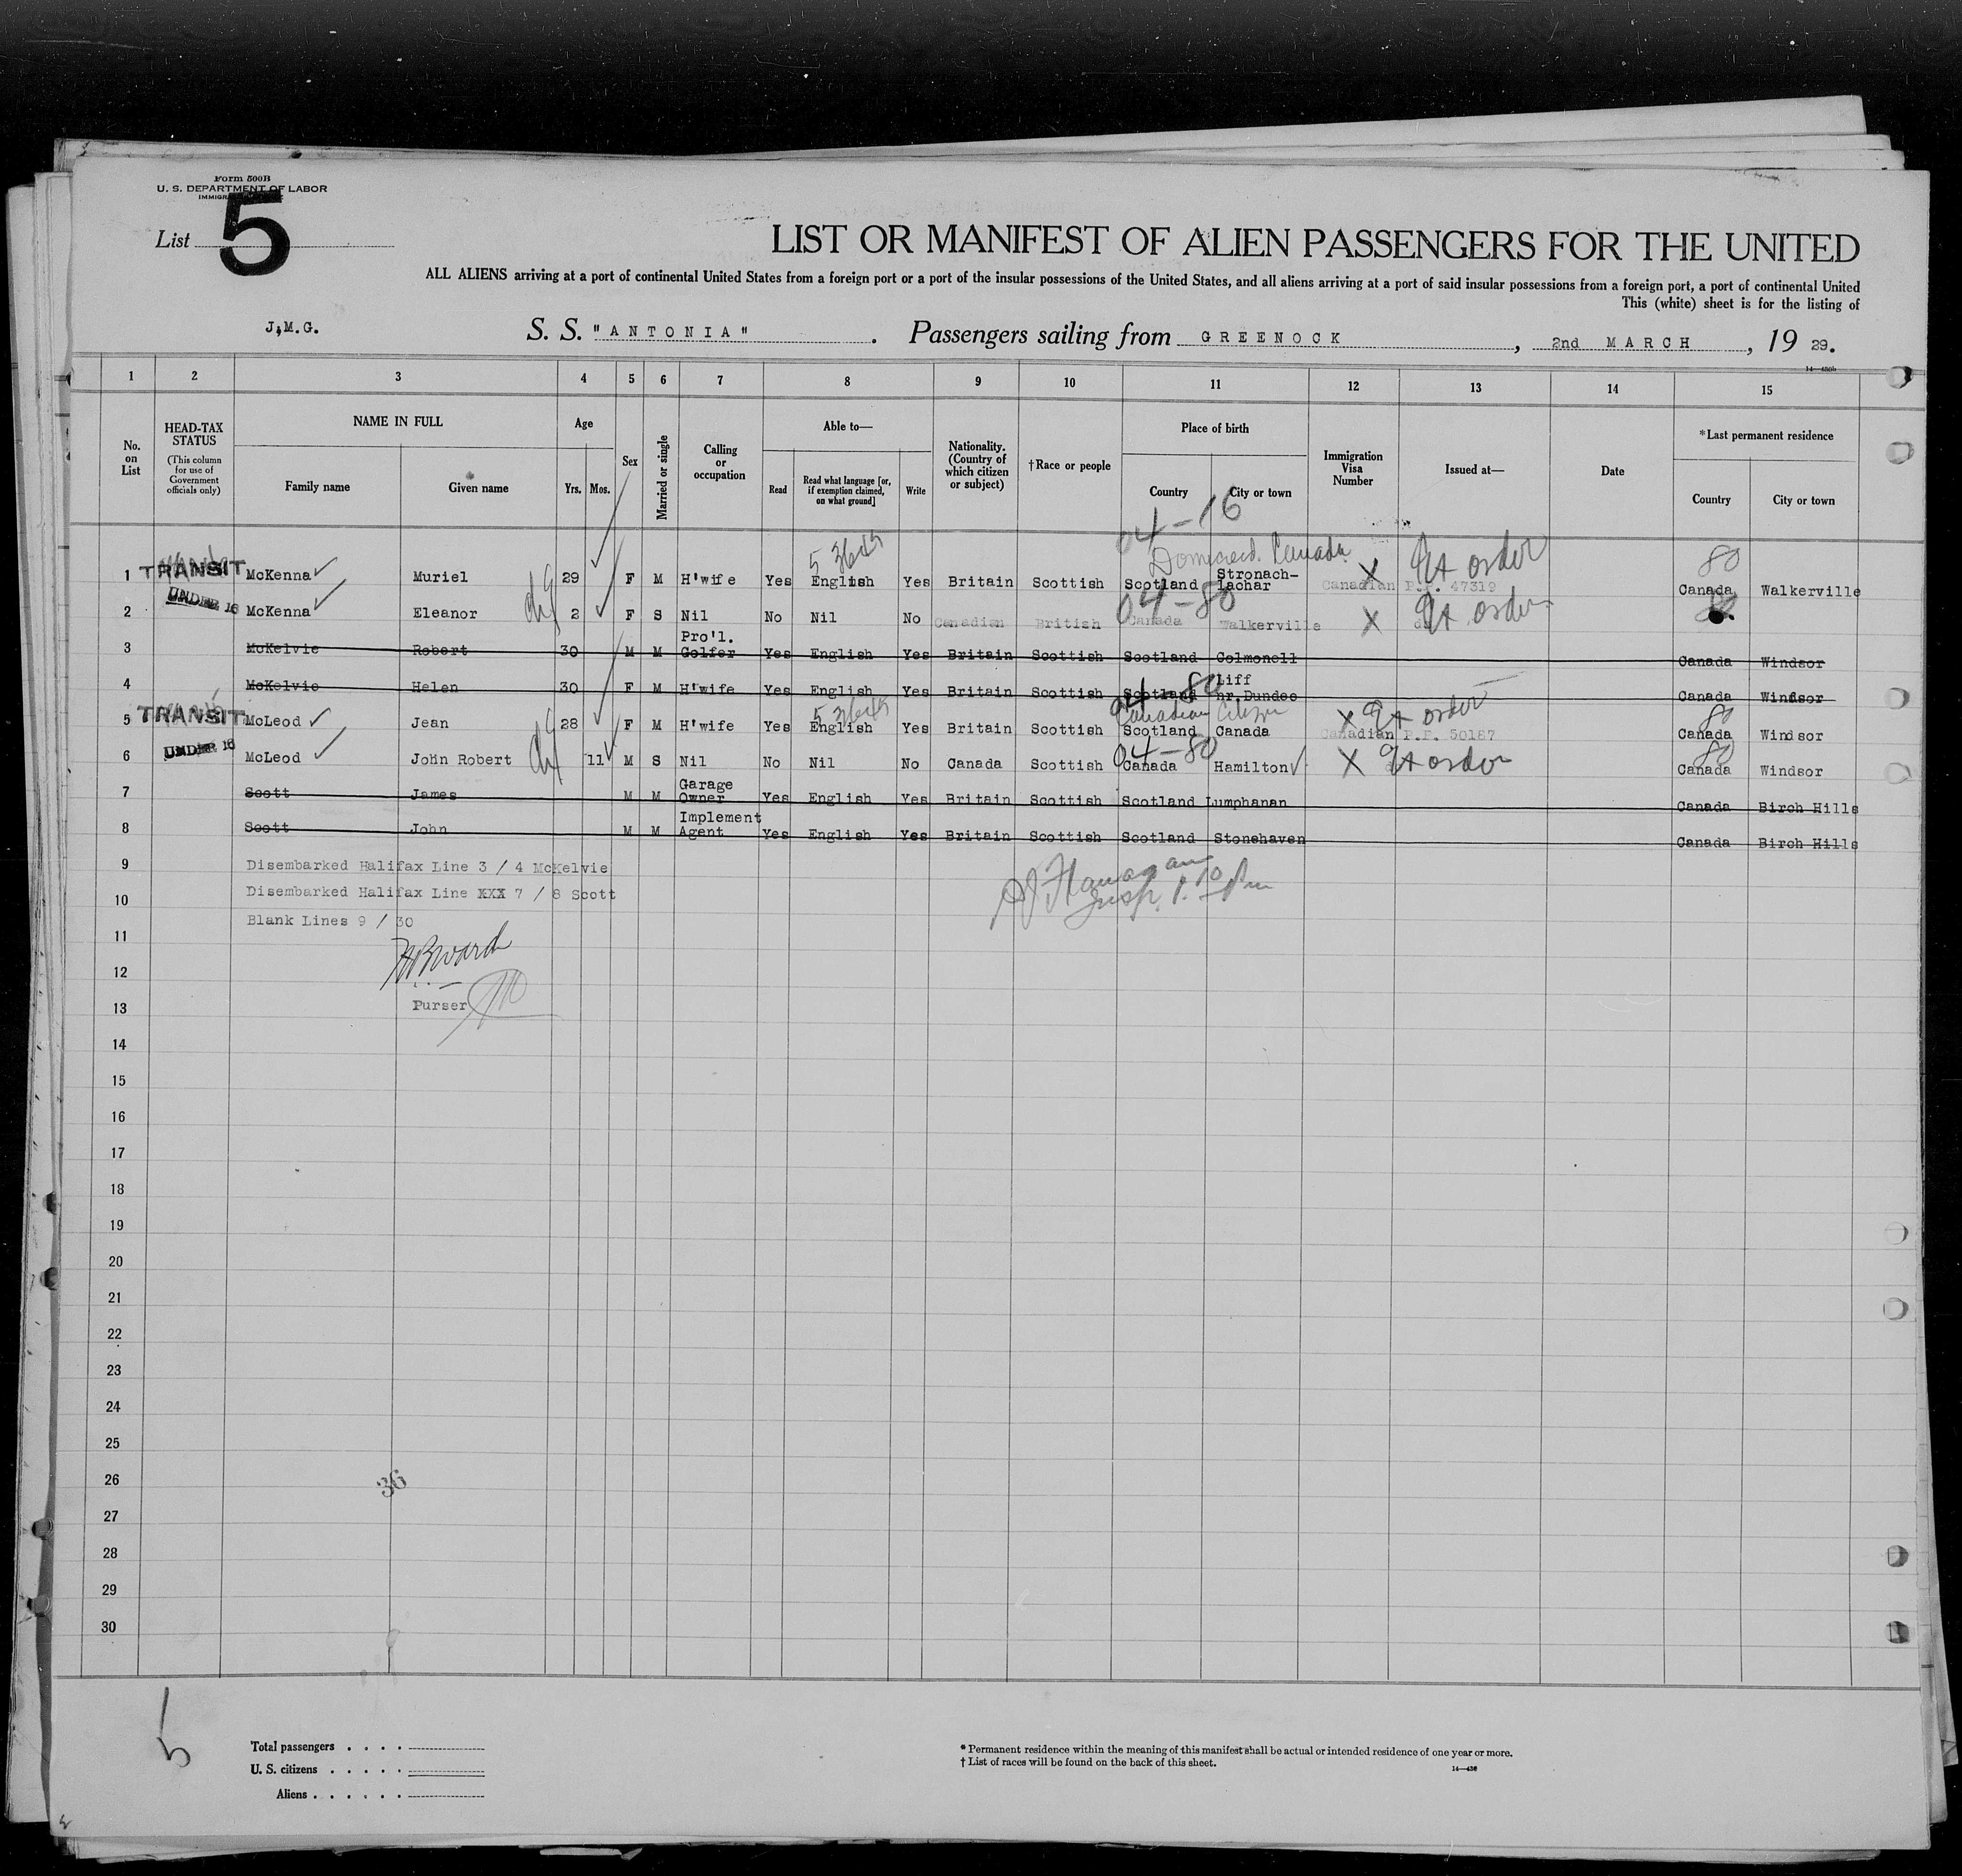 Form 500B
U. S. DEPARTMENT OF LABOR
List 5
LIST OR MANIFEST OF ALIEN PASSENGERS FOR THE UNITED
ALL ALIENS arriving at a port of continental United States from a foreign port or a port of the insular possessions of the United States, and all aliens arriving at a port of said insular possessions from a foreign port, a port of continental United
This (white) sheet is for the listing of
J.M.G. S. S. "ANTONIA". Passengers sailing from GREENOCK, 2nd MARCH, 19 29.
1 2 3 4 5 6 7 8 9 10 11 12 13 14 15
No. on List
HEAD-TAX STATUS (This column for use of Government officials only)
NAME IN FULL
Family name Given name
Age
Yrs. Mos.
Sex
Married or single
Calling or occupation
Able to—
Read Read what language [or, if exemption claimed, on what ground] Write
Nationality. (Country of which citizen or subject)
†Race or people
Place of birth
Country City or town
Immigration Visa Number
Issued at—
Date
*Last permanent residence
Country City or town
04-16
Canada
1 TRANSIT McKenna Muriel 29 F M H'wife Yes English Yes Britain Scottish Scotland Stronach-lachar X Canadian P.P. 47319 order 80 Canada Walkerville
04-80
2 UNDER 16 McKenna Eleanor 2 F S Nil No Nil No Canadian British Canada Walkerville X order
3 McKelvie Robert 30 M M Pro'l. Golfer Yes English Yes Britain Scottish Scotland Colmonell Canada Windsor
4 McKelvie Helen 30 F M H'wife Yes English Yes Britain Scottish Scotland Liff nr.Dundee Canada Windsor
04 80
Canadian Citizen
5 TRANSIT McLeod Jean 28 F M H'wife Yes English Yes Britain Scottish Scotland Canada X Canadian P.P. 50187 order 80 Canada Windsor
04-80
6 UNDER 16 McLeod John Robert 11 M S Nil No Nil No Canada Scottish Canada Hamilton X order 80 Canada Windsor
7 Scott James M M Garage Owner Yes English Yes Britain Scottish Scotland Lumphanan Canada Birch Hills
8 Scott John M M Implement Agent Yes English Yes Britain Scottish Scotland Stonehaven Canada Birch Hills
9 Disembarked Halifax Line 3 / 4 McKelvie
10 Disembarked Halifax Line XXX 7 / 8 Scott
Blank Lines 9 / 30
Flanagan
Insp.
11
12
Purser
13
14
15
16
17
18
19
20
21
22
23
24
25
26
36
27
28
29
30
5
Total passengers . . . .
U. S. citizens . . . . .
Aliens . . . . . .
* Permanent residence within the meaning of this manifest shall be actual or intended residence of one year or more.
† List of races will be found on the back of this sheet.